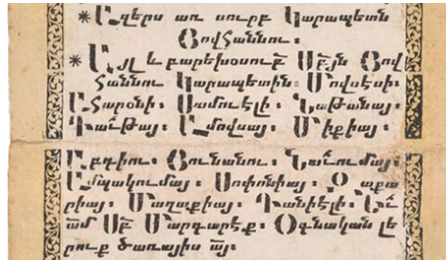 * Աղերս առ սուրբ Կարապետն
Յովհաննու ։
* Այլ և բարեխօսուԹ ՍԲյն Յով
հաննու Կարապետին։ Մովսէսի։
Ահարօնի։ Սամուէլի։ Նաթանայ։
Դաւթայ։ Ամովսայ։ Միքիայ։
Աբդիու։ Յունանու։ Նաւումայ։
Ամպակումայ։ Սոփոնիայ։ Զաքա
րիայ։ Մաղաքիայ։ Դանիէլի։ Եւ
ամ ՍԲ Մարգարէք։ Օգնական լե
րուք ծառայիս այ։